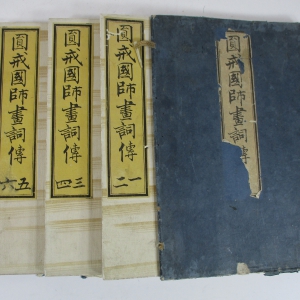 圓戒國師畫詞傳
圓戒國師畫詞傳 一二
圓戒國師畫詞傳 三四
圓戒國師畫詞傳 五六